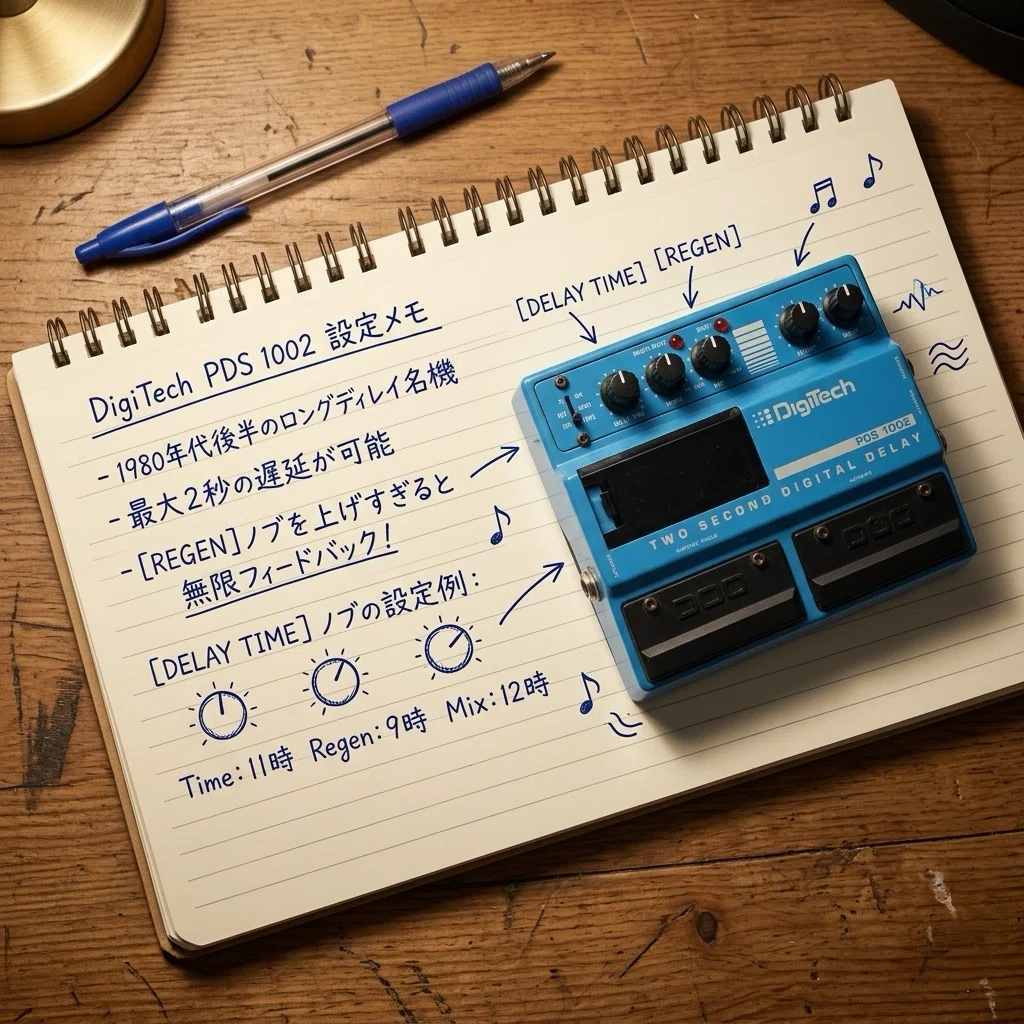 DigiTech PDS 1002 設定メモ
- 1980年代後半のロングディレイ名機
- 最大2秒の遅延が可能
- [REGEN]ノブを上げすぎると
無限フィードバック!
[DELAY TIME] ノブの設定例:
Time:11時 Regen:9時 Mix:12時
[DELAY TIME] [REGEN]
DigiTech
PDS 1002
TWO SECOND DIGITAL DELAY